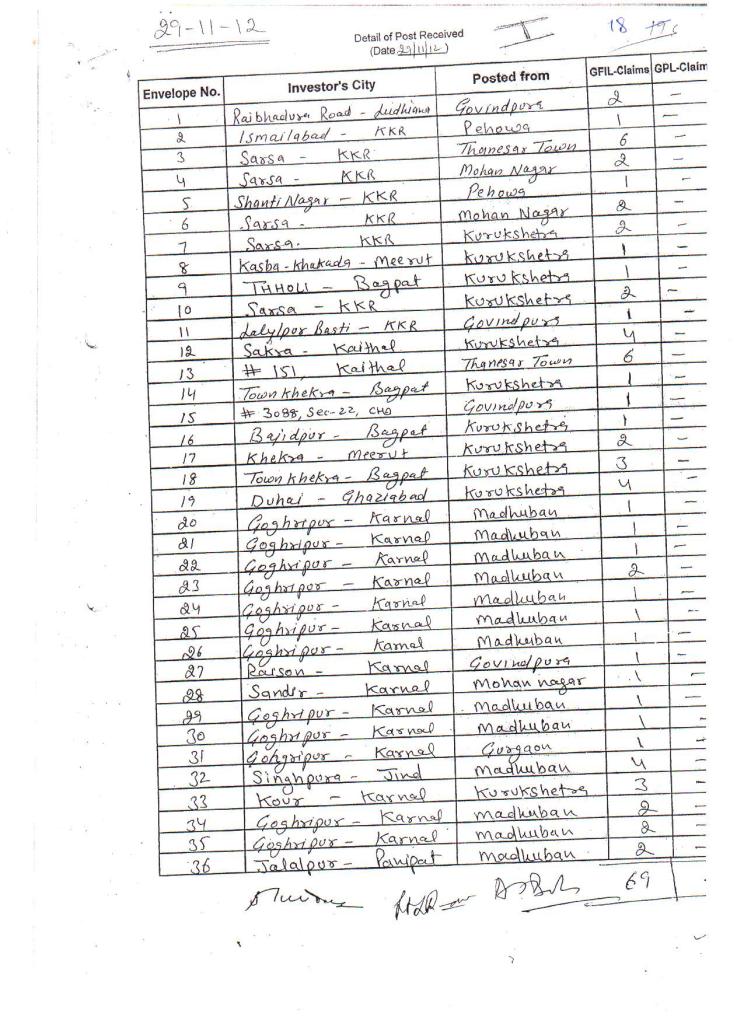 29-11-12
Detail of Post Received
(Date 29/11/12)
I
18
Envelope No. Investor's City Posted from GFIL-Claims GPL-Claim
1 Raibhadura Road - Ludhiana Govindpura 2 -
2 Ismailabad - KKR Pehowa 1 -
3 Sarsa - KKR Thanesar Town 6 -
4 Sarsa - KKR Mohan Nagar 2 -
5 Shanti Nagar - KKR Pehowa 1 -
6 Sarsa - KKR Mohan Nagar 2 -
7 Sarsa. KKR Kurukshetra 2 -
8 Kasba-Khakada - Meerut Kurukshetra 1 -
9 THHOLI - Bagpat Kurukshetra 1 -
10 Sarsa - KKR Kurukshetra 2 -
11 Lalylpur Basti - KKR Govindpura 1 -
12 Sakra - Kaithal Kurukshetra 4 -
13 # 151, Kaithal Thanesar Town 6 -
14 Town Khekra - Bagpat Kurukshetra 1 -
15 # 3088, Sec-22, CHD Govindpura 1 -
16 Bajidpur - Bagpat Kurukshetra 1 -
17 Khekra - Meerut Kurukshetra 2 -
18 Town Khekra - Bagpat Kurukshetra 3 -
19 Duhai - Ghaziabad Kurukshetra 4 -
20 Goghripur - Karnal Madhuban 1 -
21 Goghripur - Karnal Madhuban 1 -
22 Goghripur - Karnal Madhuban 1 -
23 Goghripur - Karnal Madhuban 2 -
24 Goghripur - Karnal Madhuban 1 -
25 Goghripur - Karnal Madhuban 1 -
26 Goghripur - Karnal Madhuban 1 -
27 Raison - Karnal Govindpura 1 -
28 Sandir - Karnal Mohan nagar 1 -
29 Goghripur - Karnal Madhuban 1 -
30 Goghripur - Karnal Madhuban 1 -
31 Gohgripur - Karnal Gurgaon 1 -
32 Singhpura - Jind Madhuban 4 -
33 Kour - Karnal Kurukshetra 3 -
34 Goghripur - Karnal madhuban 2 -
35 Goghripur - Karnal madhuban 2 -
36 Jalalpur - Panipat madhuban 2 -
69